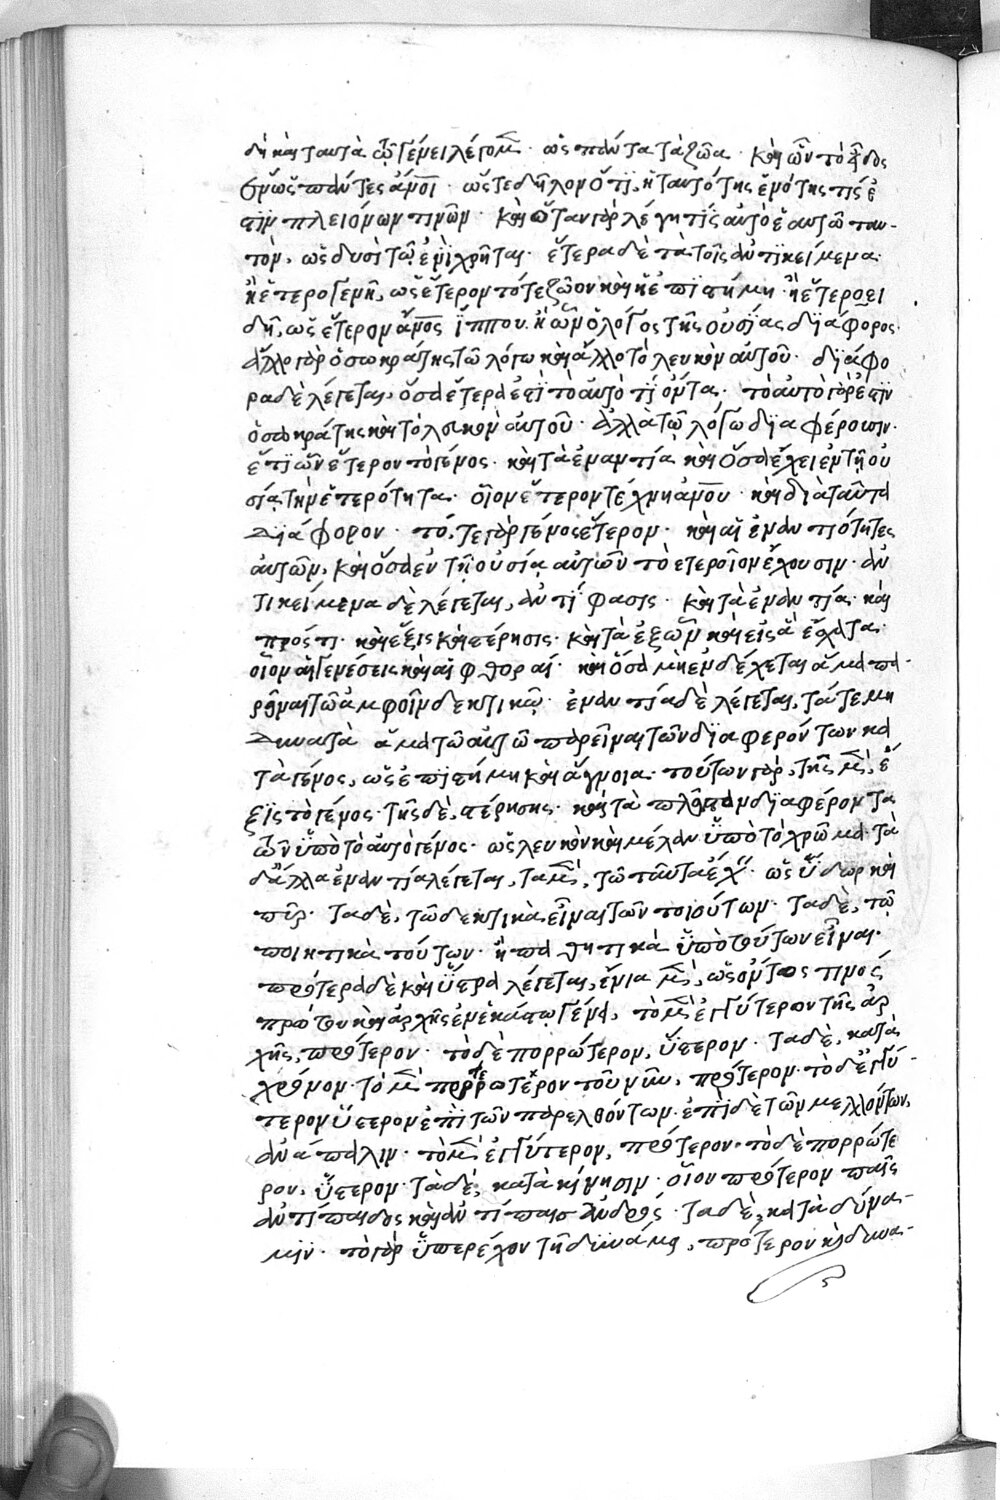 δὴ καὶ ταυτὰ τῷ γένει λέγομεν· ὡς πάντα τὰ ζῶα· καὶ ὧν τὸ εἶδος
ἓν, ὡς πάντες ἄνοι· ὥστε δῆλον ὅτι, ἡ ταυτότης ἑνότης τίς ἐ
στὶν πλειόνων τινῶν· καὶ ὅταν γὰρ λέγη τίς αὐτὸ ἑαυτῶ ταυ-
τὸν, ὡς δυσὶ τῶ ἑνὶ χρῆται· ἕτερα δὲ τὰ τοῖς ἀντικείμενα·
ἢ ἑτερογενῆ, ὡς ἕτερον τότε ζῶον καὶ ἡ ἐπιστήμη· ἢ ἑτεροει
δῆ, ὡς ἕτερον ἄνος ἵππου. ἢ ὧν ὁ λόγος τῆς οὐσίας διάφορος·
ἄλλο γὰρ ὁ σωκράτης τῶ λόγω καὶ ἄλλο τὸ λευκὸν αὐτοῦ· διάφο
ρα δὲ λέγεται, ὅσα ἕτερά ἐστι τὸ αὐτό τι ὄντα· τὸ αὐτὸ γάρ ἐστιν
ὁ σωκράτης καὶ τὸ λευκὸν αὐτοῦ· ἀλλὰ τῷ λόγω διαφέρουσιν·
ἔτι ὧν ἕτερον τὸ γένος· καὶ τὰ ἐναντία καὶ ὅσα ἔχει ἐν τῇ οὐ
σία τὴν ἑτερότητα· οἷον ἕτερον τέχνη ἀνου· καὶ διὰ ταῦτα
διάφορον· τό, τε γὰρ γένος ἕτερον· καὶ αἱ ἐναντιότητες
αὐτῶν, καὶ ὅσα ἐν τῇ οὐσία αὐτῶν τὸ ετεροῖον ἔχουσιν· ἀν
τικείμενα δὲ λέγεται, ἀντίφασις· καὶ τὰ ἐναντία· καὶ
πρός τι· καὶ ἕξις καὶ στέρησις· καὶ τὰ ἐξ ὧν καὶ εἰς ἃ ἔσχατα·
οἷον αἱ γενέσεις καὶ αἱ φθοραί· καὶ ὅσα μὴ ἐνδέχεται ἅμα πα-
ρεῖναι τῶ ἀμφοῖν δεκτικῷ· ἐναντία δὲ λέγεται, τά τε μὴ
δυνατὰ ἅμα τῶ αὐτῶ παρεῖναι τῶν διαφερόντων κα
τὰ γένος, ὡς ἐπιστήμη καὶ ἄγνοια· τούτων γὰρ, τῆς μὲν, ἕ
ξις τὸ γένος· τῆς δὲ, στέρησης· καὶ τὰ πλεῖστον διαφέροντα
τῶν ὑπὸ τὸ αὐτὸ γένος· ὡς λευκὸν καὶ μέλαν ὑπὸ τὸ χρῶμα· τὰ
δ' ἄλλα ἐναντία λέγεται, τὰ μὲν, τῶ ταῦτα ἔχειν· ὡς ὕδωρ καὶ
πῦρ· τὰ δὲ, τῶ δεκτικὰ εἶναι τῶν τοιούτων· τὰ δὲ, τῷ
ποιητικὰ τούτων· ἢ παθητικὰ ὑπὸ τούτων εἶναι·
πρότερα δὲ καὶ ὕστερα λέγεται, ἔνια μὲν, ὡς ὄντος τινὸς
πρώτου καὶ ἀρχῆς ἐν ἑκάστῳ γένει, τὸ μὲν ἐγγύτερον τῆς ἀρ
χῆς, πρότερον· τὸ δὲ πορρώτερον, ὕστερον· τὰ δὲ, κατὰ
χρόνον· τὸ μὲν πορρωτερον τοῦ νῦν, πρότερον· τὸ δὲ ἐγγύ-
τερον ὕστερον ἐπὶ τῶν παρελθόντων· ἐπὶ δὲ τῶν μελλόντων,
ἀνάπαλιν· τὸ μὲν ἐγγύτερον, πρότερον· τὸ δὲ πορρώτε
ρον, ὕστερον· τὰ δὲ, κατὰ κίνησιν· οἷον πρότερον παῖς
ἀντίπαιδος καὶ ἀντίπαισ ἀνδρός· τὰ δὲ, κατὰ δύνα-
μιν· τὸ γὰρ ὑπερέχον τῇ δυνάμει, πρότερον καὶ δυνα-